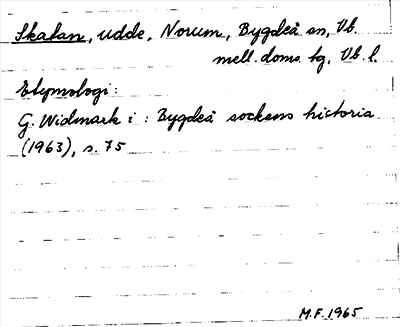 Skatan, udde, Norum, Bygdeå sn, Vb.
mell. doms. tg, Vb. l.
Etymologi:
G. Widmark i : Bygdeå sockens historia
(1963), s. 75
M.F. 1965